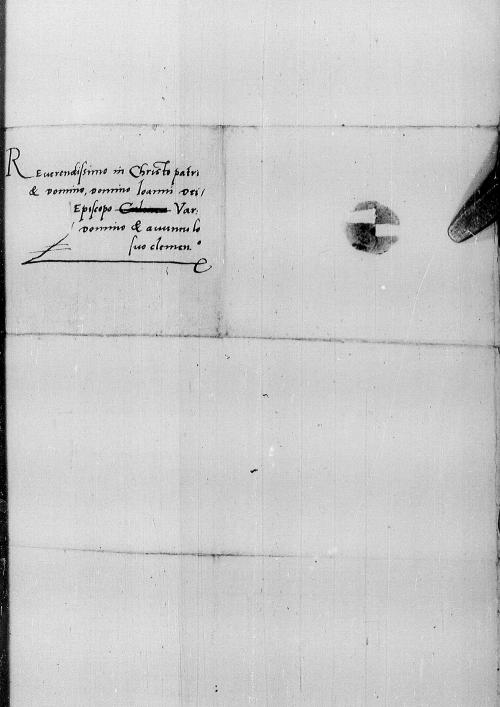 Reuerendissimo in Christo patri
& domino, domino Ioanni dei
Episcopo Var:
domino & auunculo
suo clemen:°